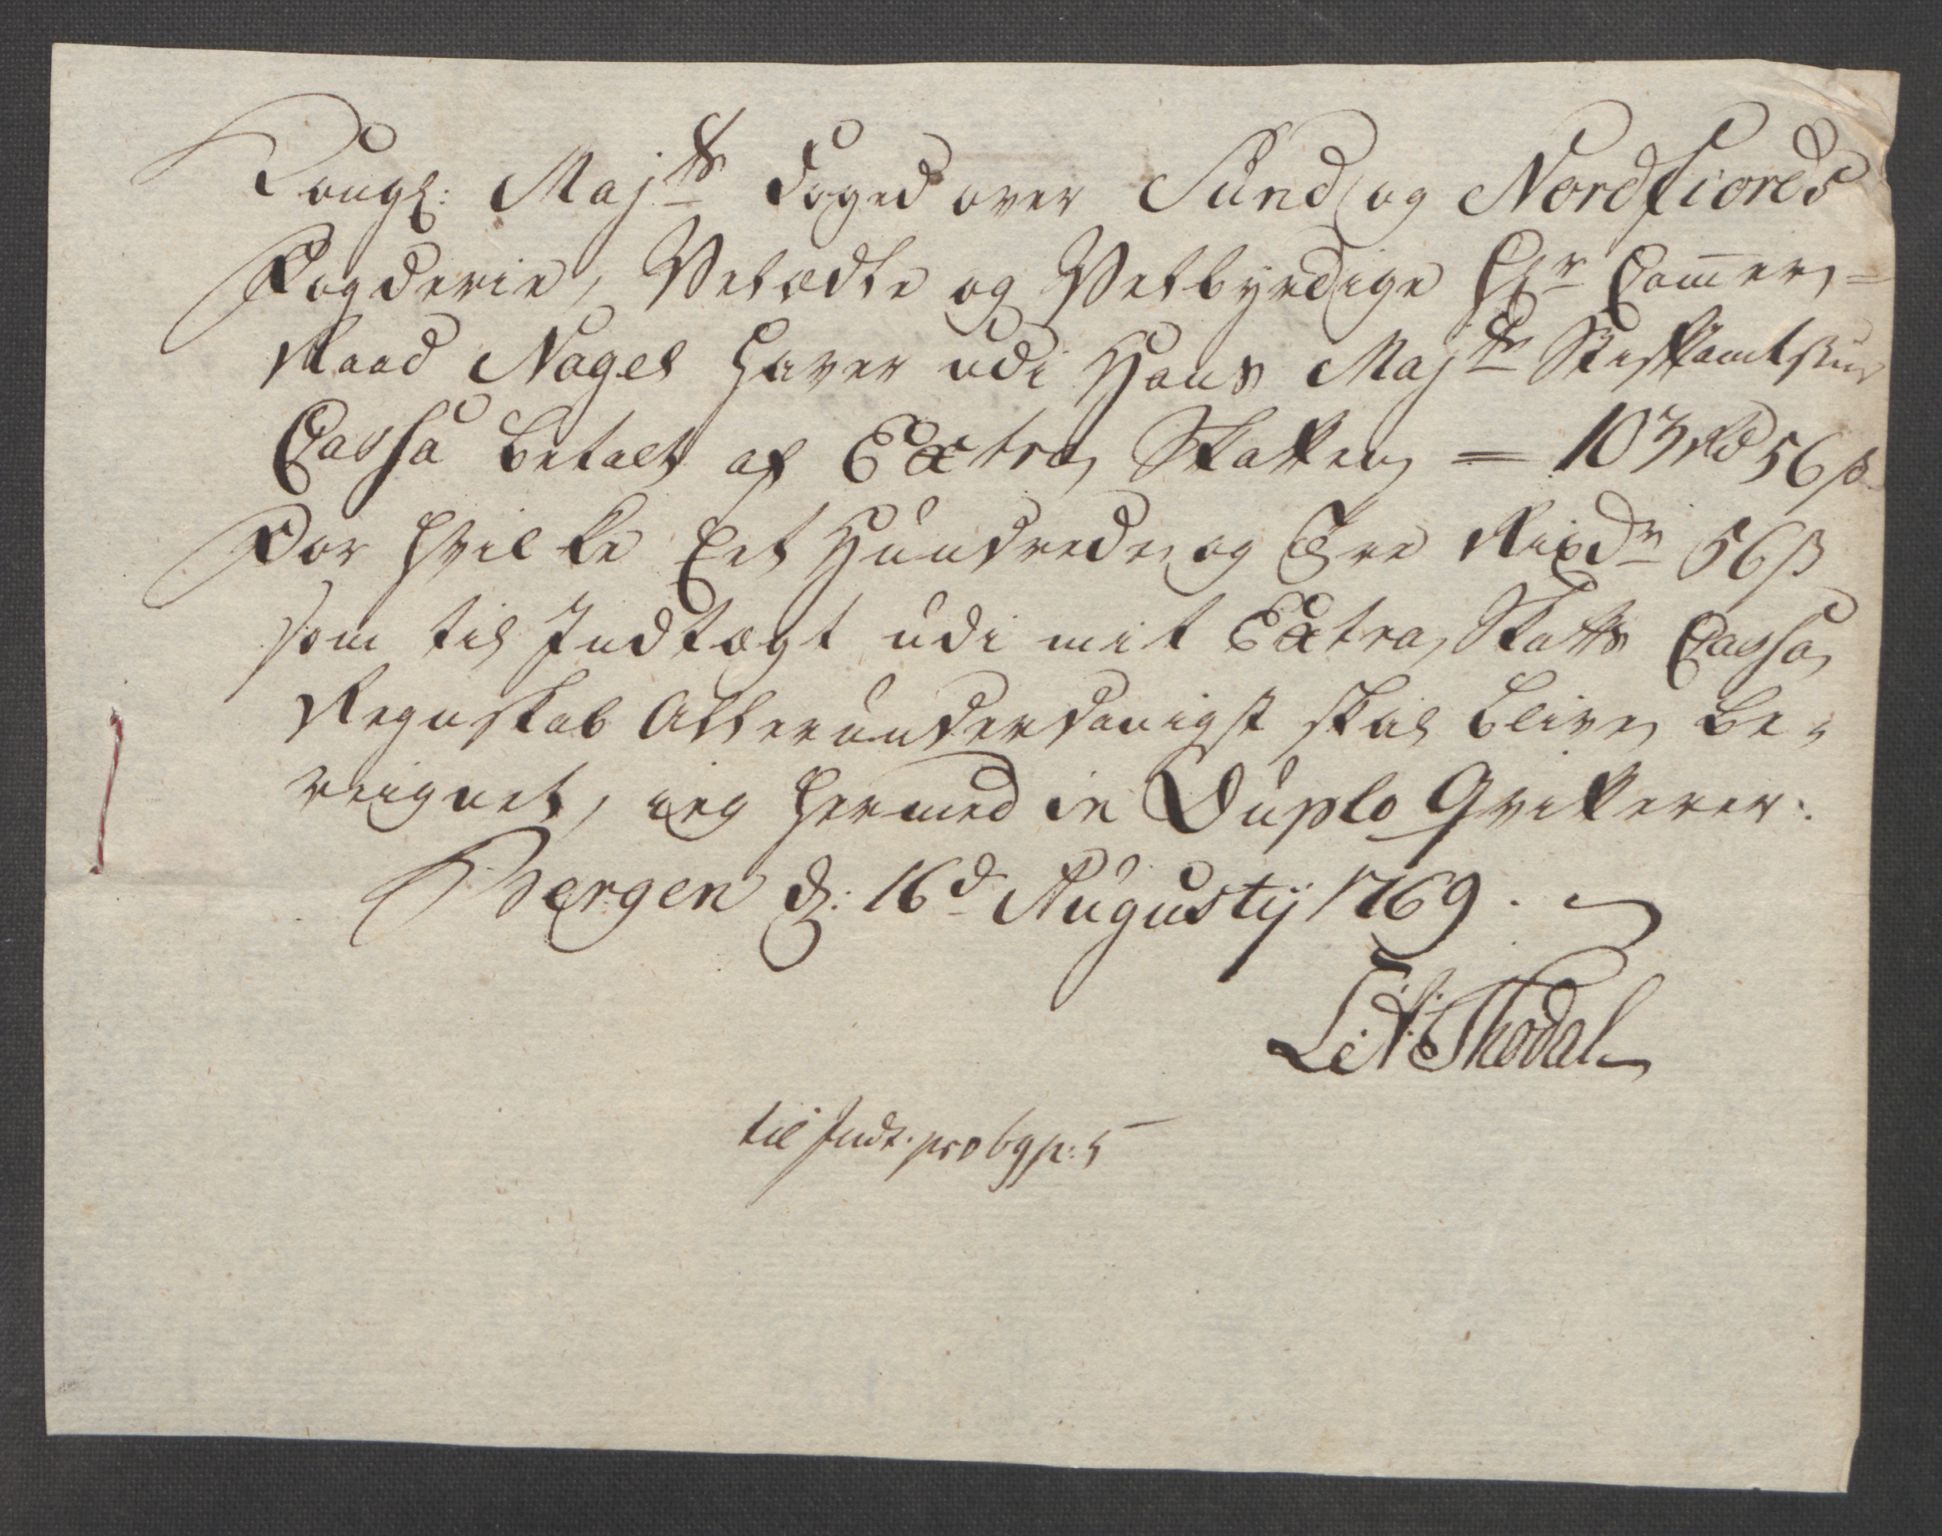 Kongl: Maj:ts Foged over Sund og Nordfiords
Fogderie, Velædle og Velbyrdige Hr Com̄er=
Raad Nagel haver udi Hans Maj:ts Stiftamtstue
Cassa betalt af Extra Skatten = 103 Rd 56 ß
For hvilke Eet Hundrede og Tre Rixdr 56 ß
som til Indtægt udi mit Extra Skatts Cassa
Regnskab Allerunderdanigst skal blive be-
reignet, ieg hermed in Duplo Qvitterer.
Bergen d: 16d Augustij 1769.
Thodal
til Indt. pro 69 p: 5